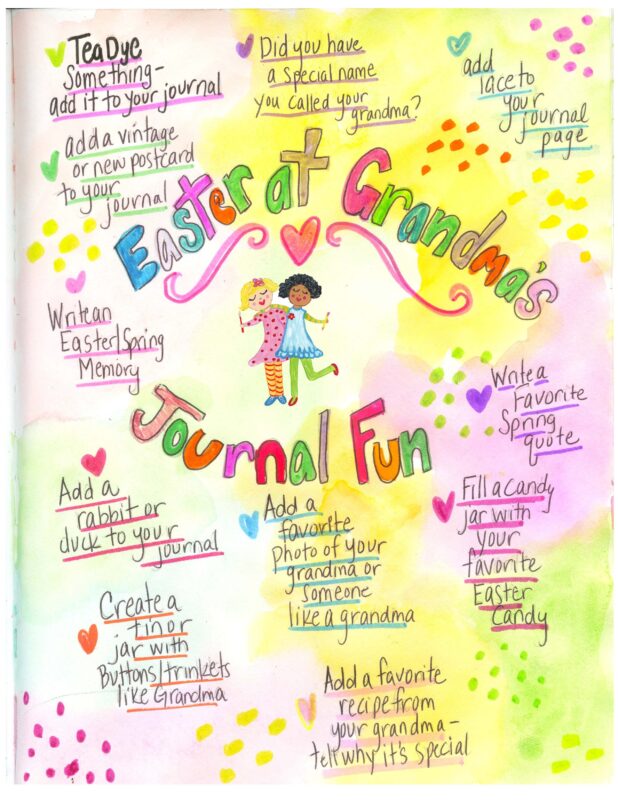 Tea Dye
Something-
add it to your journal
Did you have
a special name
you called your
grandma?
add
lace to
your
journal
page
add a vintage
or new postcard
to your
journal
Easter at Grandma's
Write an
Easter/Spring
Memory
Journal Fun
Write a
Favorite
Spring
quote
Add a
rabbit or
duck to your
journal
Add a
favorite
photo of your
grandma or
Someone
like a grandma
Fill a Candy
jar with
your
favorite
Easter
Candy
Create a
tin or
jar with
Buttons/trinkets
like Grandma
Add a favorite
recipe from
your grandma-
tell why it's special